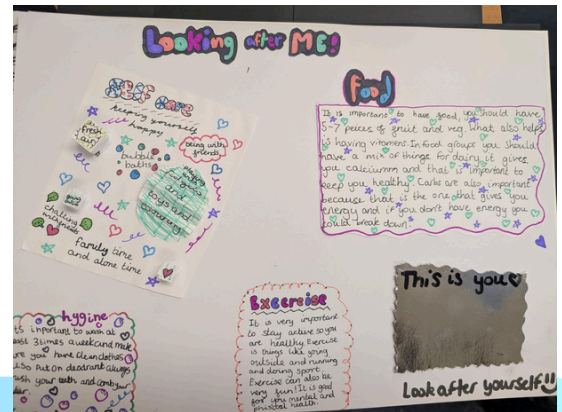 Looking after ME!
SELF CARE
keeping yourself
happy
fresh
air
being with
friends
bubble
baths
and
toys and
chatting
with friends
family time
and alone time
Food
It is important to have food, you should have
5-7 peices of fruit and veg. What also helps
is having vitamins. In food groups you should
have a mix of things for dairy it gives
you calciumm and that is important to
keep you healthy. Carbs are also important
because that is the one that gives you
energy and if you don't have energy you
could break down.
hygine
inportant to wash at
3 times a week and make
you have clean clothes
so put on deodrant always
your teeth and comb your
Excercise
It is very important
to stay active so you
are healthy. Exercise
is things like going
outside and running
and doing sport.
Exercise can also be
very fun! It is good
for you mental and
phisical health.
This is you
Look after yourself!!